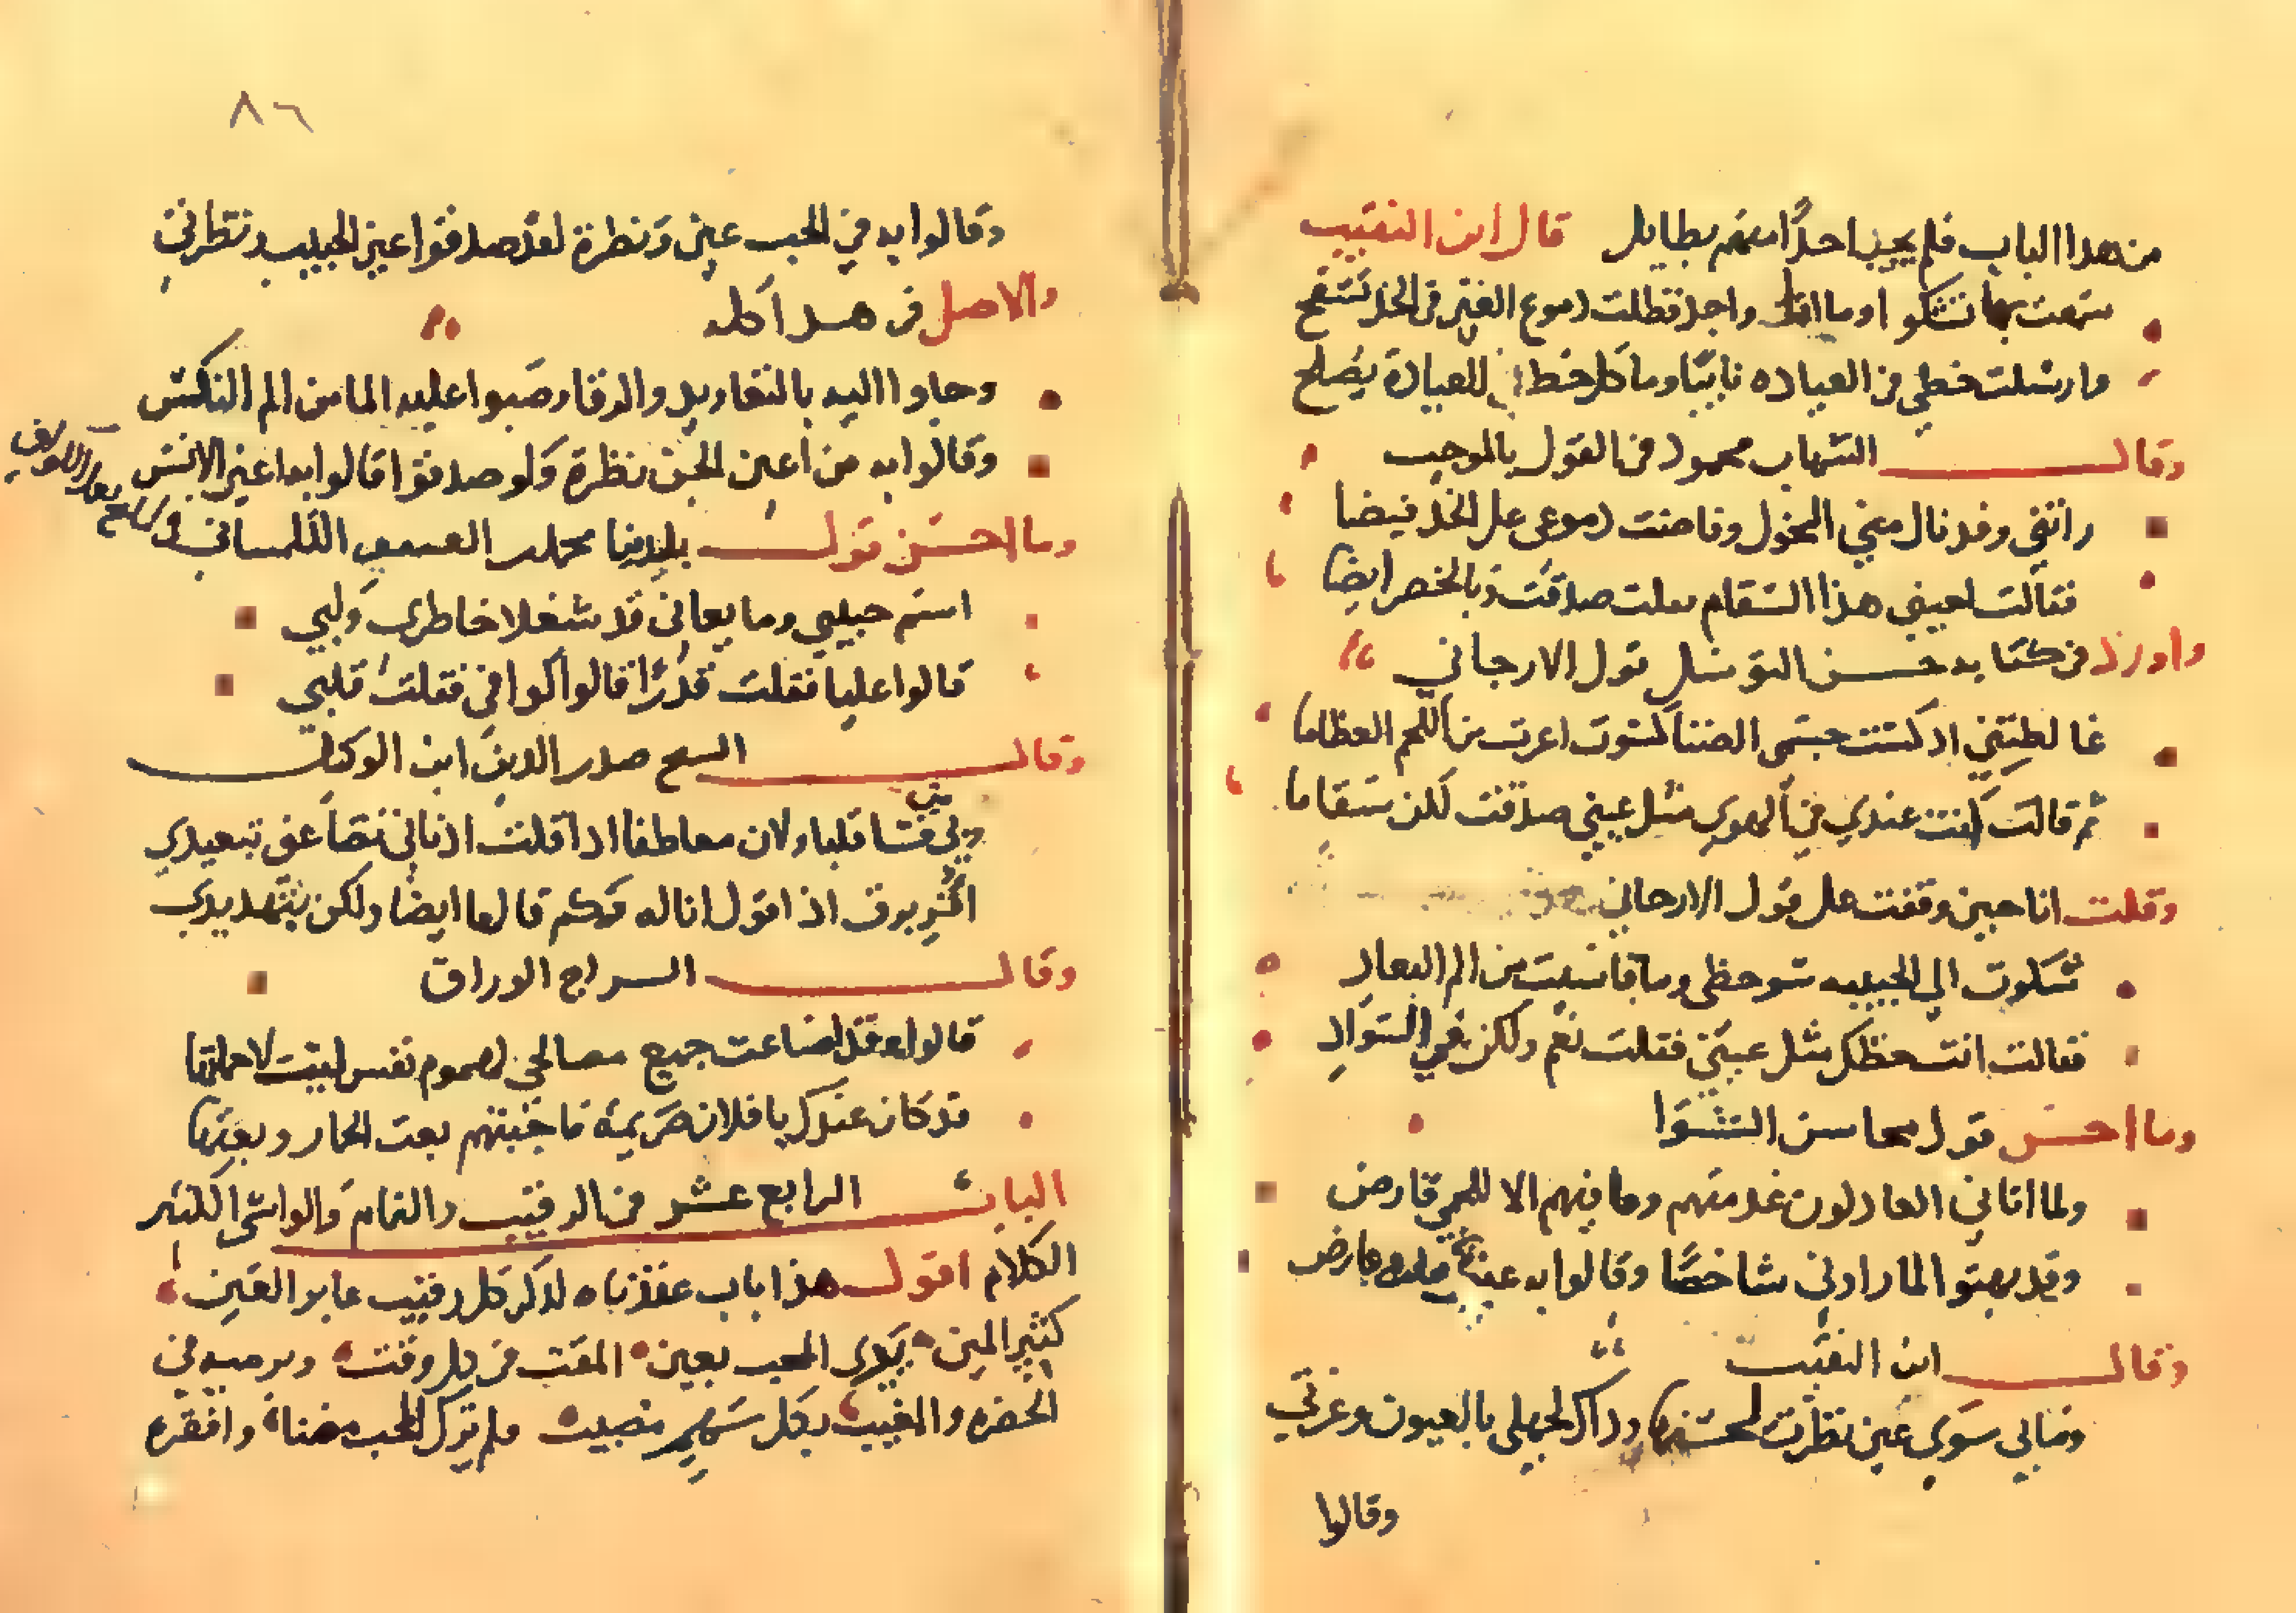 من هدا الباب فلم يجد احدًا منهم بطايل قال ابن النقيب
سمعت بها تشكو او ما واجد فظلت دموع العين في الخد تسفح
وارسلت خطي في العياده نايبًا وما كل خط للعيادة يصلح
وقال الشهاب محمود في القول بالموجب
رانني وقد نال مني النحول وفاضت دموعي على الخد فيضا
فقالت بعيني هذا السقام فعلت صدقت وبالخصر ايضا
واورد في كتابه حسن التوسل قول الارجاني
غالطتني اد كست جسمي الضنا كسوت اعرت من اللحم العظاما
ثم قالت انت عندي في الهوي مثل عيني صدقت لكن سقاما
وقلت انا حين وقفت على قول الارجاني
شكوت الي الحبيبه سو حظي وما قاسيت من الم البعاد
فقالت انت حظك مثل عيني فقلت نعم ولكن في السواد
وما احسن قول محاسن الشوا
ولما اتاني العادلون عدمتهم وما فيهم الا للحمي قارض
وقد بهتو لما راوني شاخصًا وقالوا به عين فقلت وعارض
وقال ابن النقيب
ومابي سوي عين نظرت لحسنها وداك لجهلي بالعيون وغرتي
وقالوا
٨٦
وقالوا به في الحب عين ونظرة لقد صدقوا عين الحبيب ونظرتي
والاصل في هدا كله
وجاوا اليه بالتعاويد والرقا وصبوا عليه الما من الم النكس
وقالوا به من اعين الجن نظرة ولو صدقوا قالوا به اعين الانس
وما احسن قول بلدينا محمد بن العفيف التلمساني في
اسم حبيبي وما يعاني قد شغلا خاطري ولبي
قالوا عليا فقلت قدرًا قالوا كوافي فقلت قلبي
وقال الشيخ صدر الدين ابن الوكيل
وبي من قسا قلبا ولان معاطفا ادا قلت ادناني تضاعف تبعيدي
اقر برق اذ اقول انا له وكم قالها ايضا ولكن بتهديدي
وقال السراج الوراق
قالوا وقد ضاعت جميع مصالحي لهموم نفس ليت لا حملتها
قد كان عندك يا فلان صريمة فاجبتهم بعت الحمار وبعتها
الباب الرابع عشر في الرقيب والنمام والواشي الكثير
الكلام اقول هذا باب عقدناه لذكر كل رقيب عابر العين
كثير المين يري المحب بعين المقت في كل وقت ويرميه في
الحضره والمغيب بكل سهم مصيب فلم يترك المحب مضناه وافقره